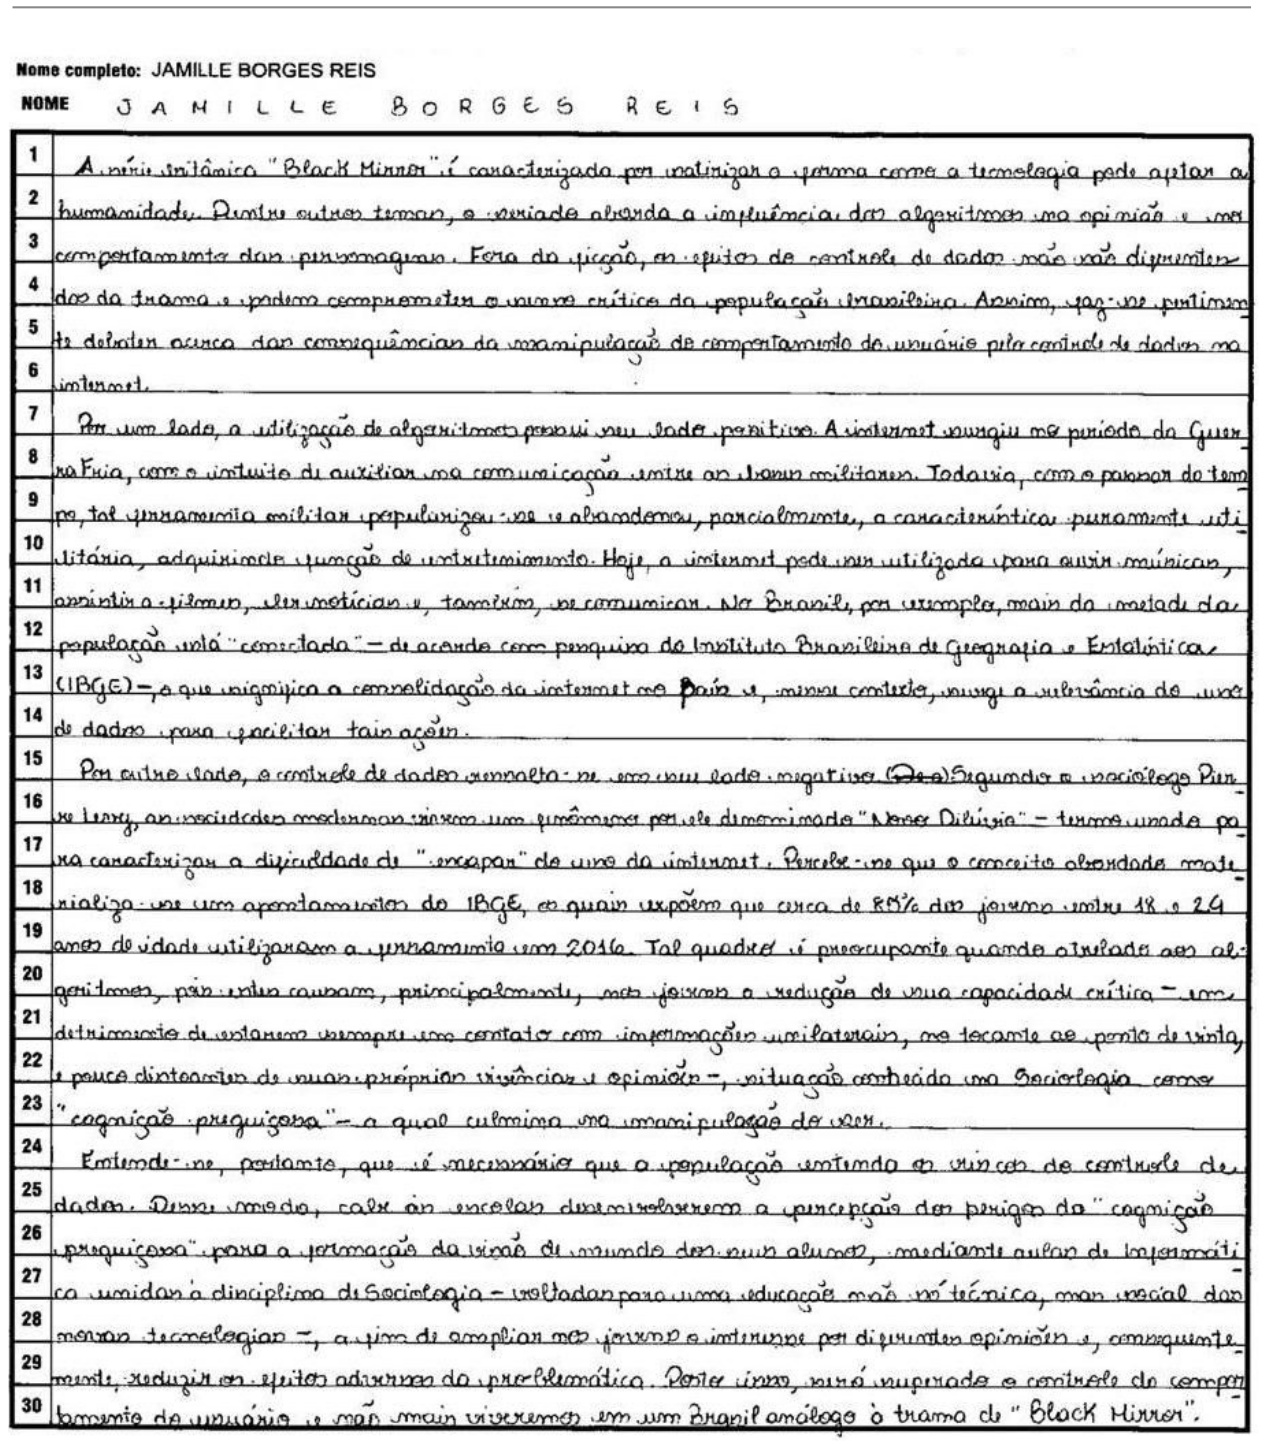 Nome completo: JAMILLE BORGES REIS
NOME JAMILLE BORGES REIS
1 A série britânica "Black Mirror" é caracterizada por satirizar a forma como a tecnologia pode afetar a
2 humanidade. Dentre outros temas, o seriado aborda a influência dos algoritmos na opinião e no
3 comportamento das personagens. Fora da ficção, os efeitos do controle de dados não são diferentes
4 dos da trama e podem comprometer o senso crítico da população brasileira. Assim, faz-se pertinen-
5 te debater acerca das consequências da manipulação do comportamento do usuário pelo controle de dados na
6 internet.
7 Por um lado, a utilização de algoritmos possui seu lado positivo. A internet surgiu no período da Guer-
8 ra Fria, com o intuito de auxiliar na comunicação entre as bases militares. Todavia, com o passar do tem-
9 po, tal ferramenta militar popularizou-se e abandonou, parcialmente, a característica puramente uti-
10 litária, adquirindo função de entretenimento. Hoje, a internet pode ser utilizada para ouvir músicas,
11 assistir a filmes, ler notícias e, também, se comunicar. No Brasil, por exemplo, mais da metade da
12 população está "conectada" – de acordo com pesquisa do Instituto Brasileiro de Geografia e Estatística
13 (IBGE) –, o que significa a consolidação da internet no país e, nesse contexto, surge a relevância do uso
14 de dados para facilitar tais ações.
15 Por outro lado, o controle de dados ressalta-se em seu lado negativo. Segundo o sociólogo Pier-
16 re Levy, as sociedades modernas vivem um fenômeno por ele denominado "Novo Dilúvio" – termo usado pa-
17 ra caracterizar a dificuldade de "escapar" do uso da internet. Percebe-se que o conceito abordado mate-
18 rializa-se em apontamentos do IBGE, os quais expõem que cerca de 85% dos jovens entre 18 e 24
19 anos de idade utilizaram a ferramenta em 2016. Tal quadro é preocupante quando atrelado aos al-
20 goritmos, pois estes causam, principalmente, nos jovens a redução de sua capacidade crítica – em
21 detrimento de estarem sempre em contato com informações unilaterais, no tocante ao ponto de vista,
22 e pouco distoantes de suas próprias vivências e opiniões –, situação conhecida na Sociologia como
23 "cognição preguiçosa" – a qual culmina na manipulação do ser.
24 Entende-se, portanto, que é necessário que a população entenda os riscos do controle de
25 dados. Desse modo, cabe às escolas desenvolverem a percepção dos perigos da "cognição
26 preguiçosa" para a formação da visão de mundo dos seus alunos, mediante aulas de Informáti-
27 ca unidas à disciplina de Sociologia – voltadas para uma educação não só técnica, mas social das
28 novas tecnologias –, a fim de ampliar nos jovens o interesse por diferentes opiniões e, consequente-
29 mente, reduzir os efeitos adversos da problemática. Posto isso, será superado o controle do compor-
30 tamento do usuário e não mais viveremos em um Brasil análogo à trama de "Black Mirror".